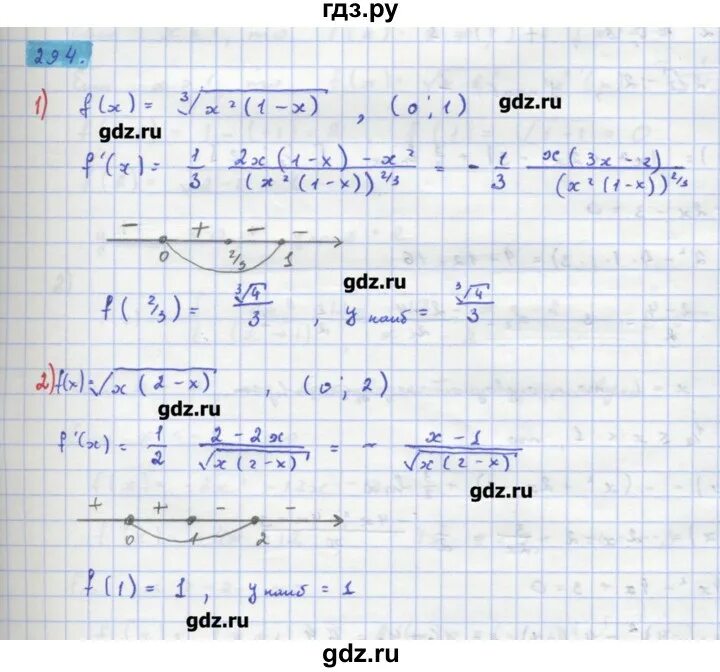 гдз.ру
294.
1) f(x) = ∛(x²(1-x)) , (0; 1)
gdz.ru
gdz.ru
f'(x) = 1/3 (2x(1-x) - x²)/(x²(1-x))^(2/3) = - 1/3 x(3x-2)/(x²(1-x))^(2/3)
- + - -
0 2/3 1
gdz.ru
f(2/3) = ∛4/3 , y наиб = ∛4/3
2) f(x) = √(x(2-x)) , (0; 2)
gdz.ru
f'(x) = 1/2 (2-2x)/√(x(2-x)) = - (x-1)/√(x(2-x))
gdz.ru
+ + - -
0 1 2
f(1) = 1 , y наиб = 1
gdz.ru
gdz.ru